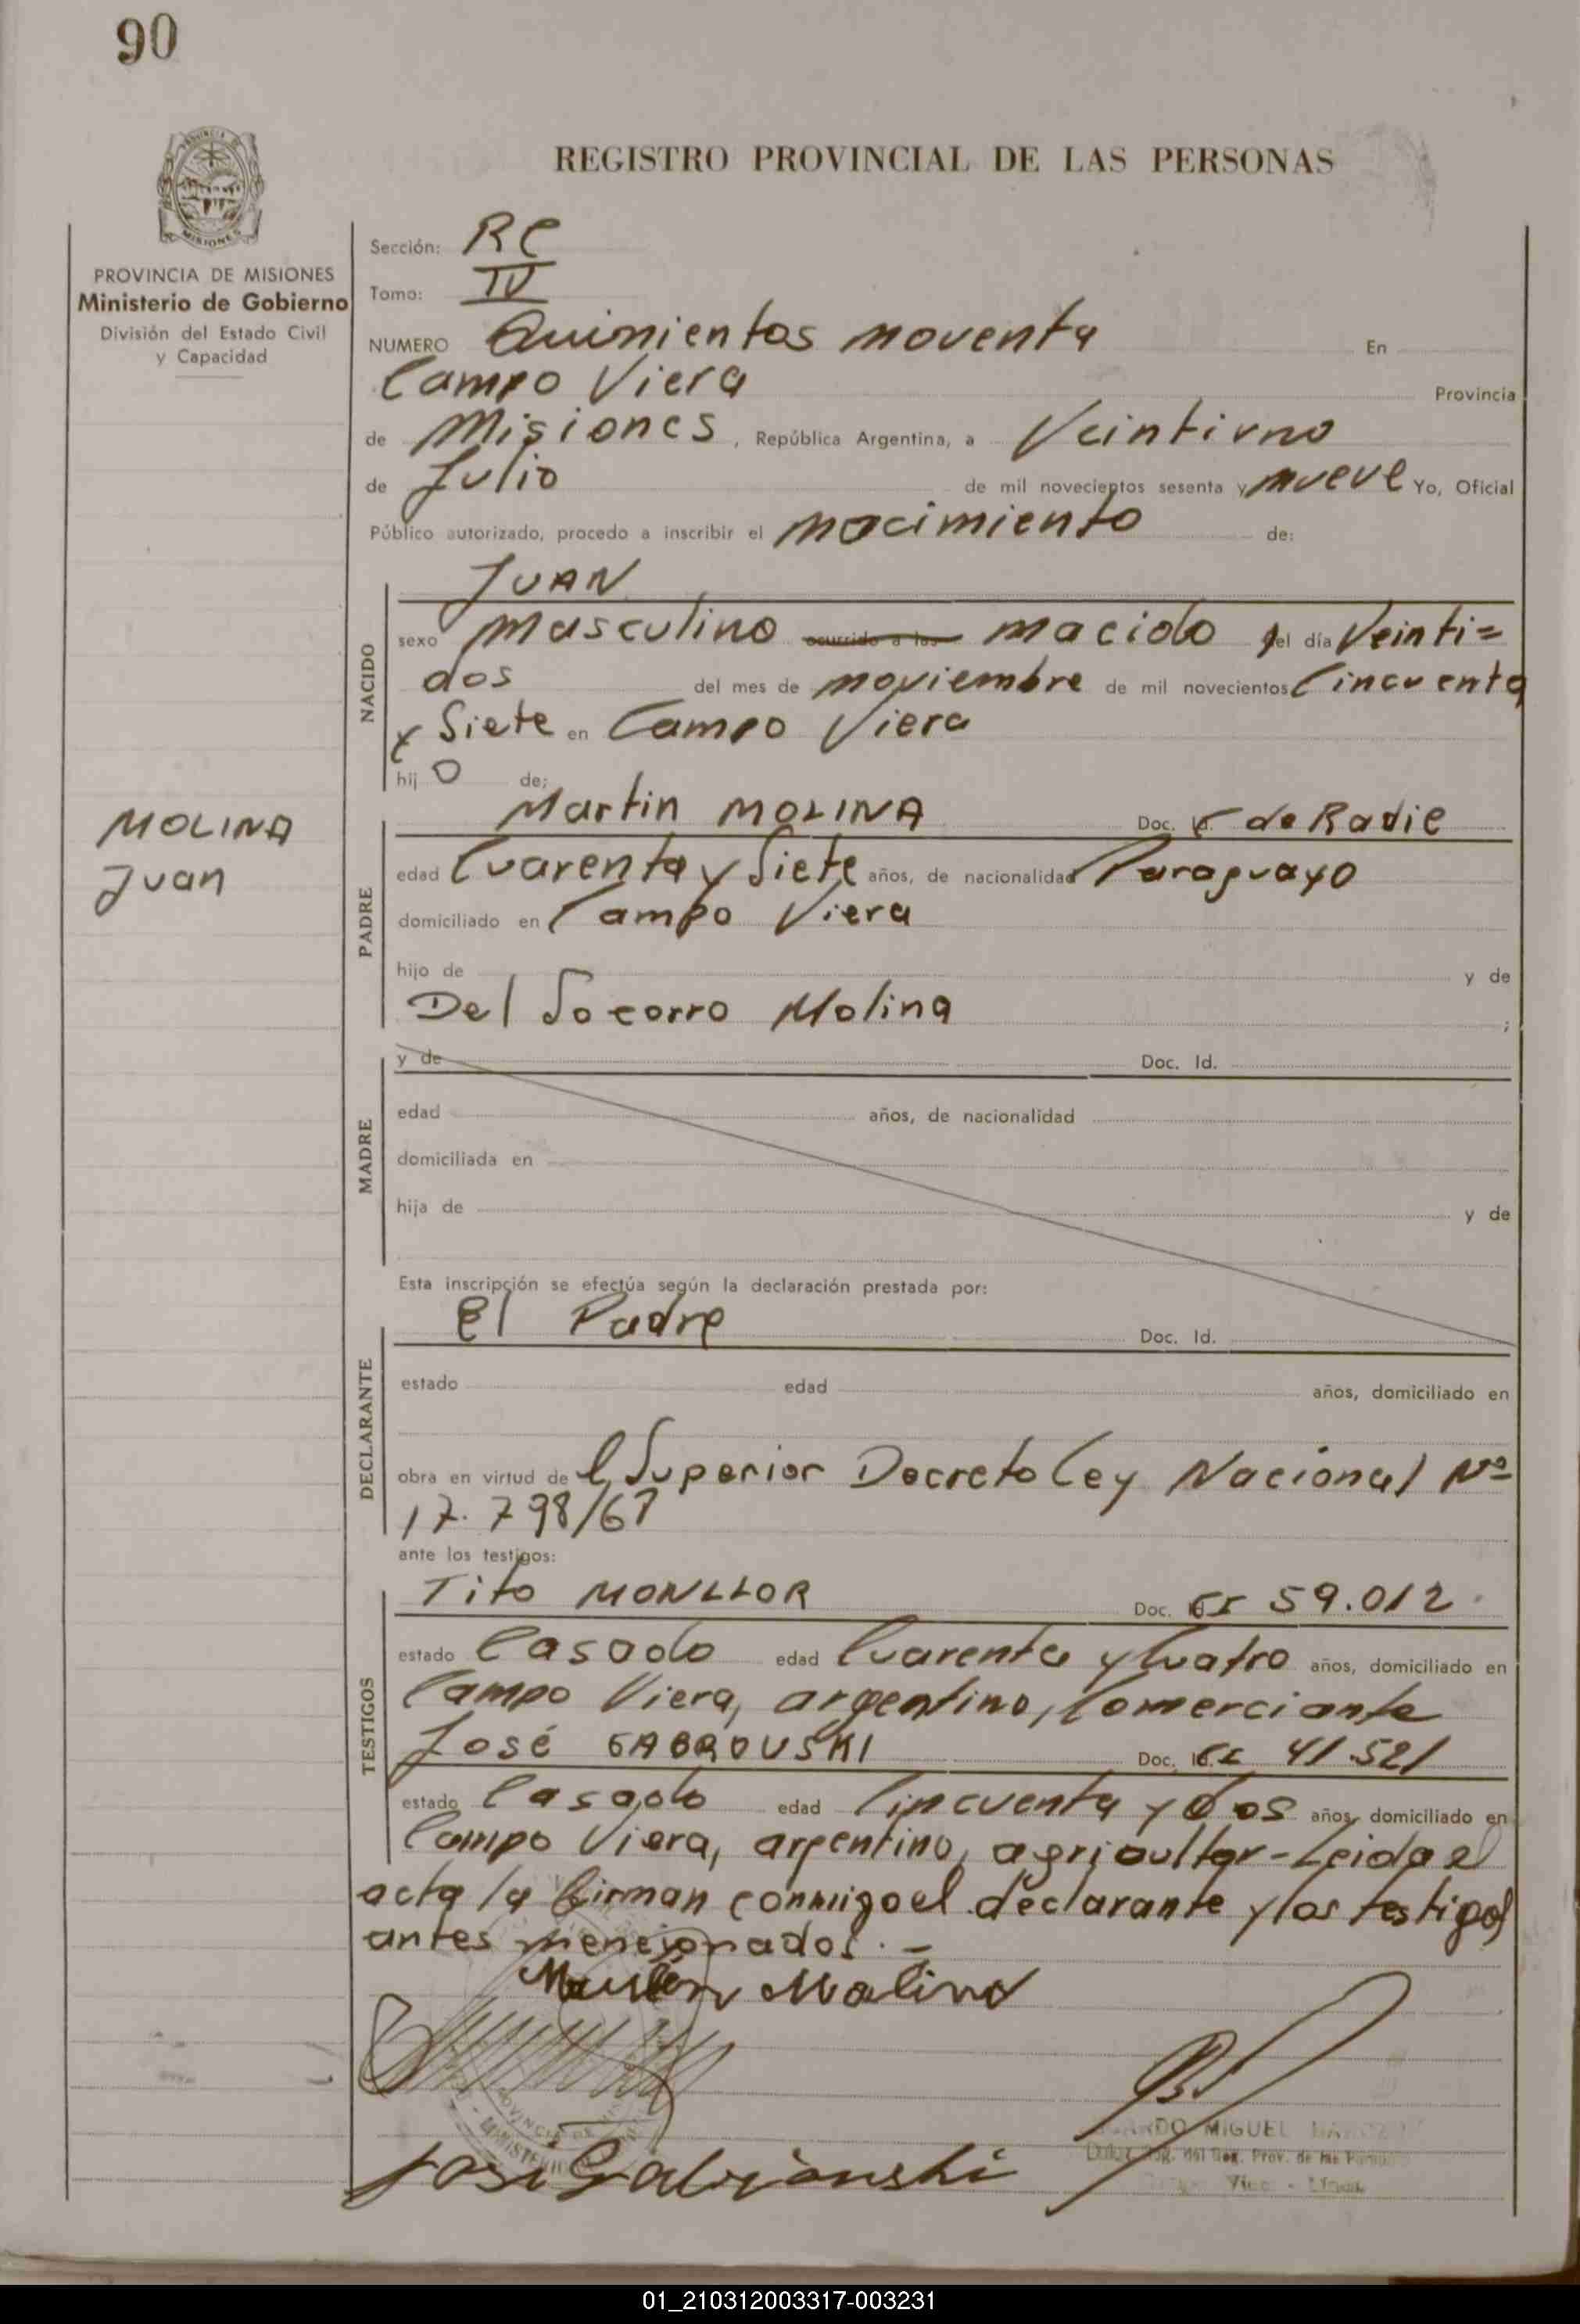 90
REGISTRO PROVINCIAL DE LAS PERSONAS
PROVINCIA DE MISIONES
Ministerio de Gobierno
División del Estado Civil
y Capacidad
Sección: RC
Tomo: IV
NUMERO Quinientos noventa En
Campo Viera Provincia
de Misiones, República Argentina, a Veintiuno
de Julio de mil novecientos sesenta y nueve Yo, Oficial
Público autorizado, procedo a inscribir el nacimiento de:
NACIDO
JUAN
sexo masculino ocurrido a las nacido el día Veinti=
dos del mes de noviembre de mil novecientos Cincuenta
y Siete en Campo Viera
hij o de;
MOLINA
Juan
PADRE
Martin MOLINA Doc. de Radic
edad Cuarenta y Siete años, de nacionalidad Paraguayo
domiciliado en Campo Viera
hijo de y de
Del Socorro Molina ;
MADRE
y de Doc. Id.
edad años, de nacionalidad
domiciliada en
hija de y de
Esta inscripción se efectúa según la declaración prestada por:
DECLARANTE
El Padre Doc. Id.
estado edad años, domiciliado en
obra en virtud de l Superior Decreto Ley Nacional Nº
17.798/68
ante los testigos:
TESTIGOS
Tito MONLLOR Doc. CI 59.012
estado Casado edad Cuarenta y Cuatro años, domiciliado en
Campo Viera, argentino, Comerciante
José GABROUSKI Doc. Id. 41.521
estado Casado edad Cincuenta y dos años, domiciliado en
Campo Viera, argentino, agricultor - Leida el
acta la firman conmigo el declarante y los testigos
antes mencionados. -
Martin Molina
MIGUEL
del Reg. Prov. de las
01_210312003317-003231